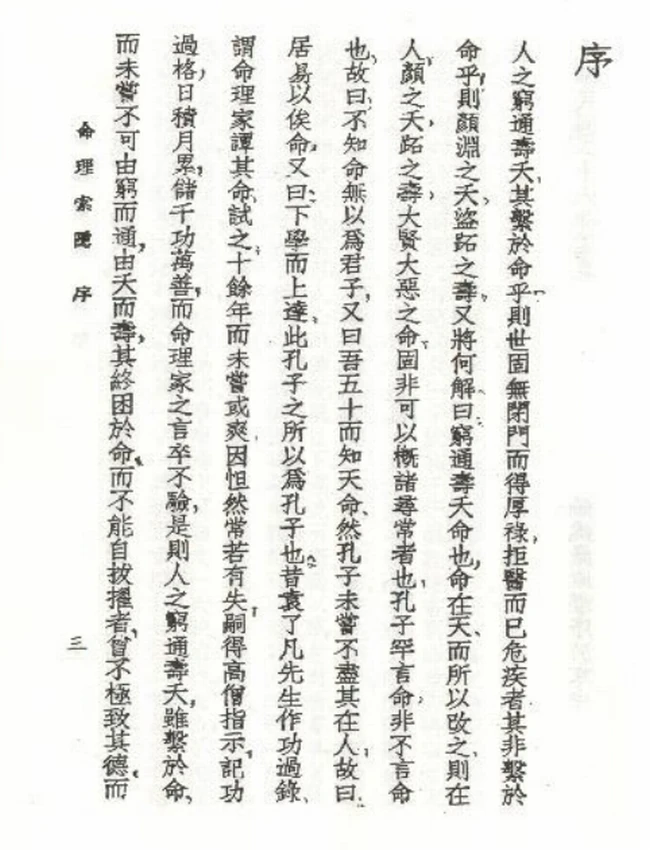 序
人之窮通壽夭、其繫於命乎、則世固無閉門而得厚祿、拒醫而已危疾者、其非繫於
命乎、則顏淵之夭、盜跖之壽、又將何解、曰、窮通壽夭、命也、命在天、而所以改之、則在
人、顏之夭、跖之壽、大賢大惡之命、固非可以概諸尋常者也、孔子罕言命、非不言命
也、故曰、不知命無以爲君子、又曰吾五十而知天命、然孔子未嘗不盡其在人、故曰、
居易以俟命、又曰、下學而上達、此孔子之所以爲孔子也、昔袁了凡先生作功過錄、
謂命理家譚其命、試之、十餘年而未嘗或爽、因怛然常若有失、嗣得高僧指示、記功
過格、日積月累、儲千功萬善、而命理家之言卒不驗、是則人之窮通壽夭、雖繫於命、
而未嘗不可由窮而通、由夭而壽、其終困於命、而不能自拔擢者、曾不極致其德、而
命理索隱 序
三